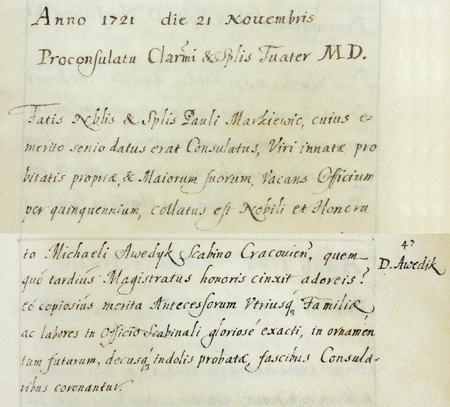 Anno 1721 die 21 Novembris
Proconsulatu Clarmi & Splis Tuater M.D.
Fatis Nblis & Splis Pauli Markiewic, cuius e-
merito senio datus erat Consulatus, Viri innatæ pro
bitatis propriæ, & Maiorum suorum, Vacans Officium
per quinquennium, collatus est Nobili et Honora
to Michaeli Awedyk Scabino Cracovien, quem-
47
D. Awedik
quó tardius Magistratus honoris cinxit adoreis?
eó copiosius merita Antecessorum Utriusq Familiæ
ac labores in Officio Scabinali gloriose exacti, in ornamen
tum futurum, decusq indolis probatæ, fascibus Consula-
ribus coronantur.